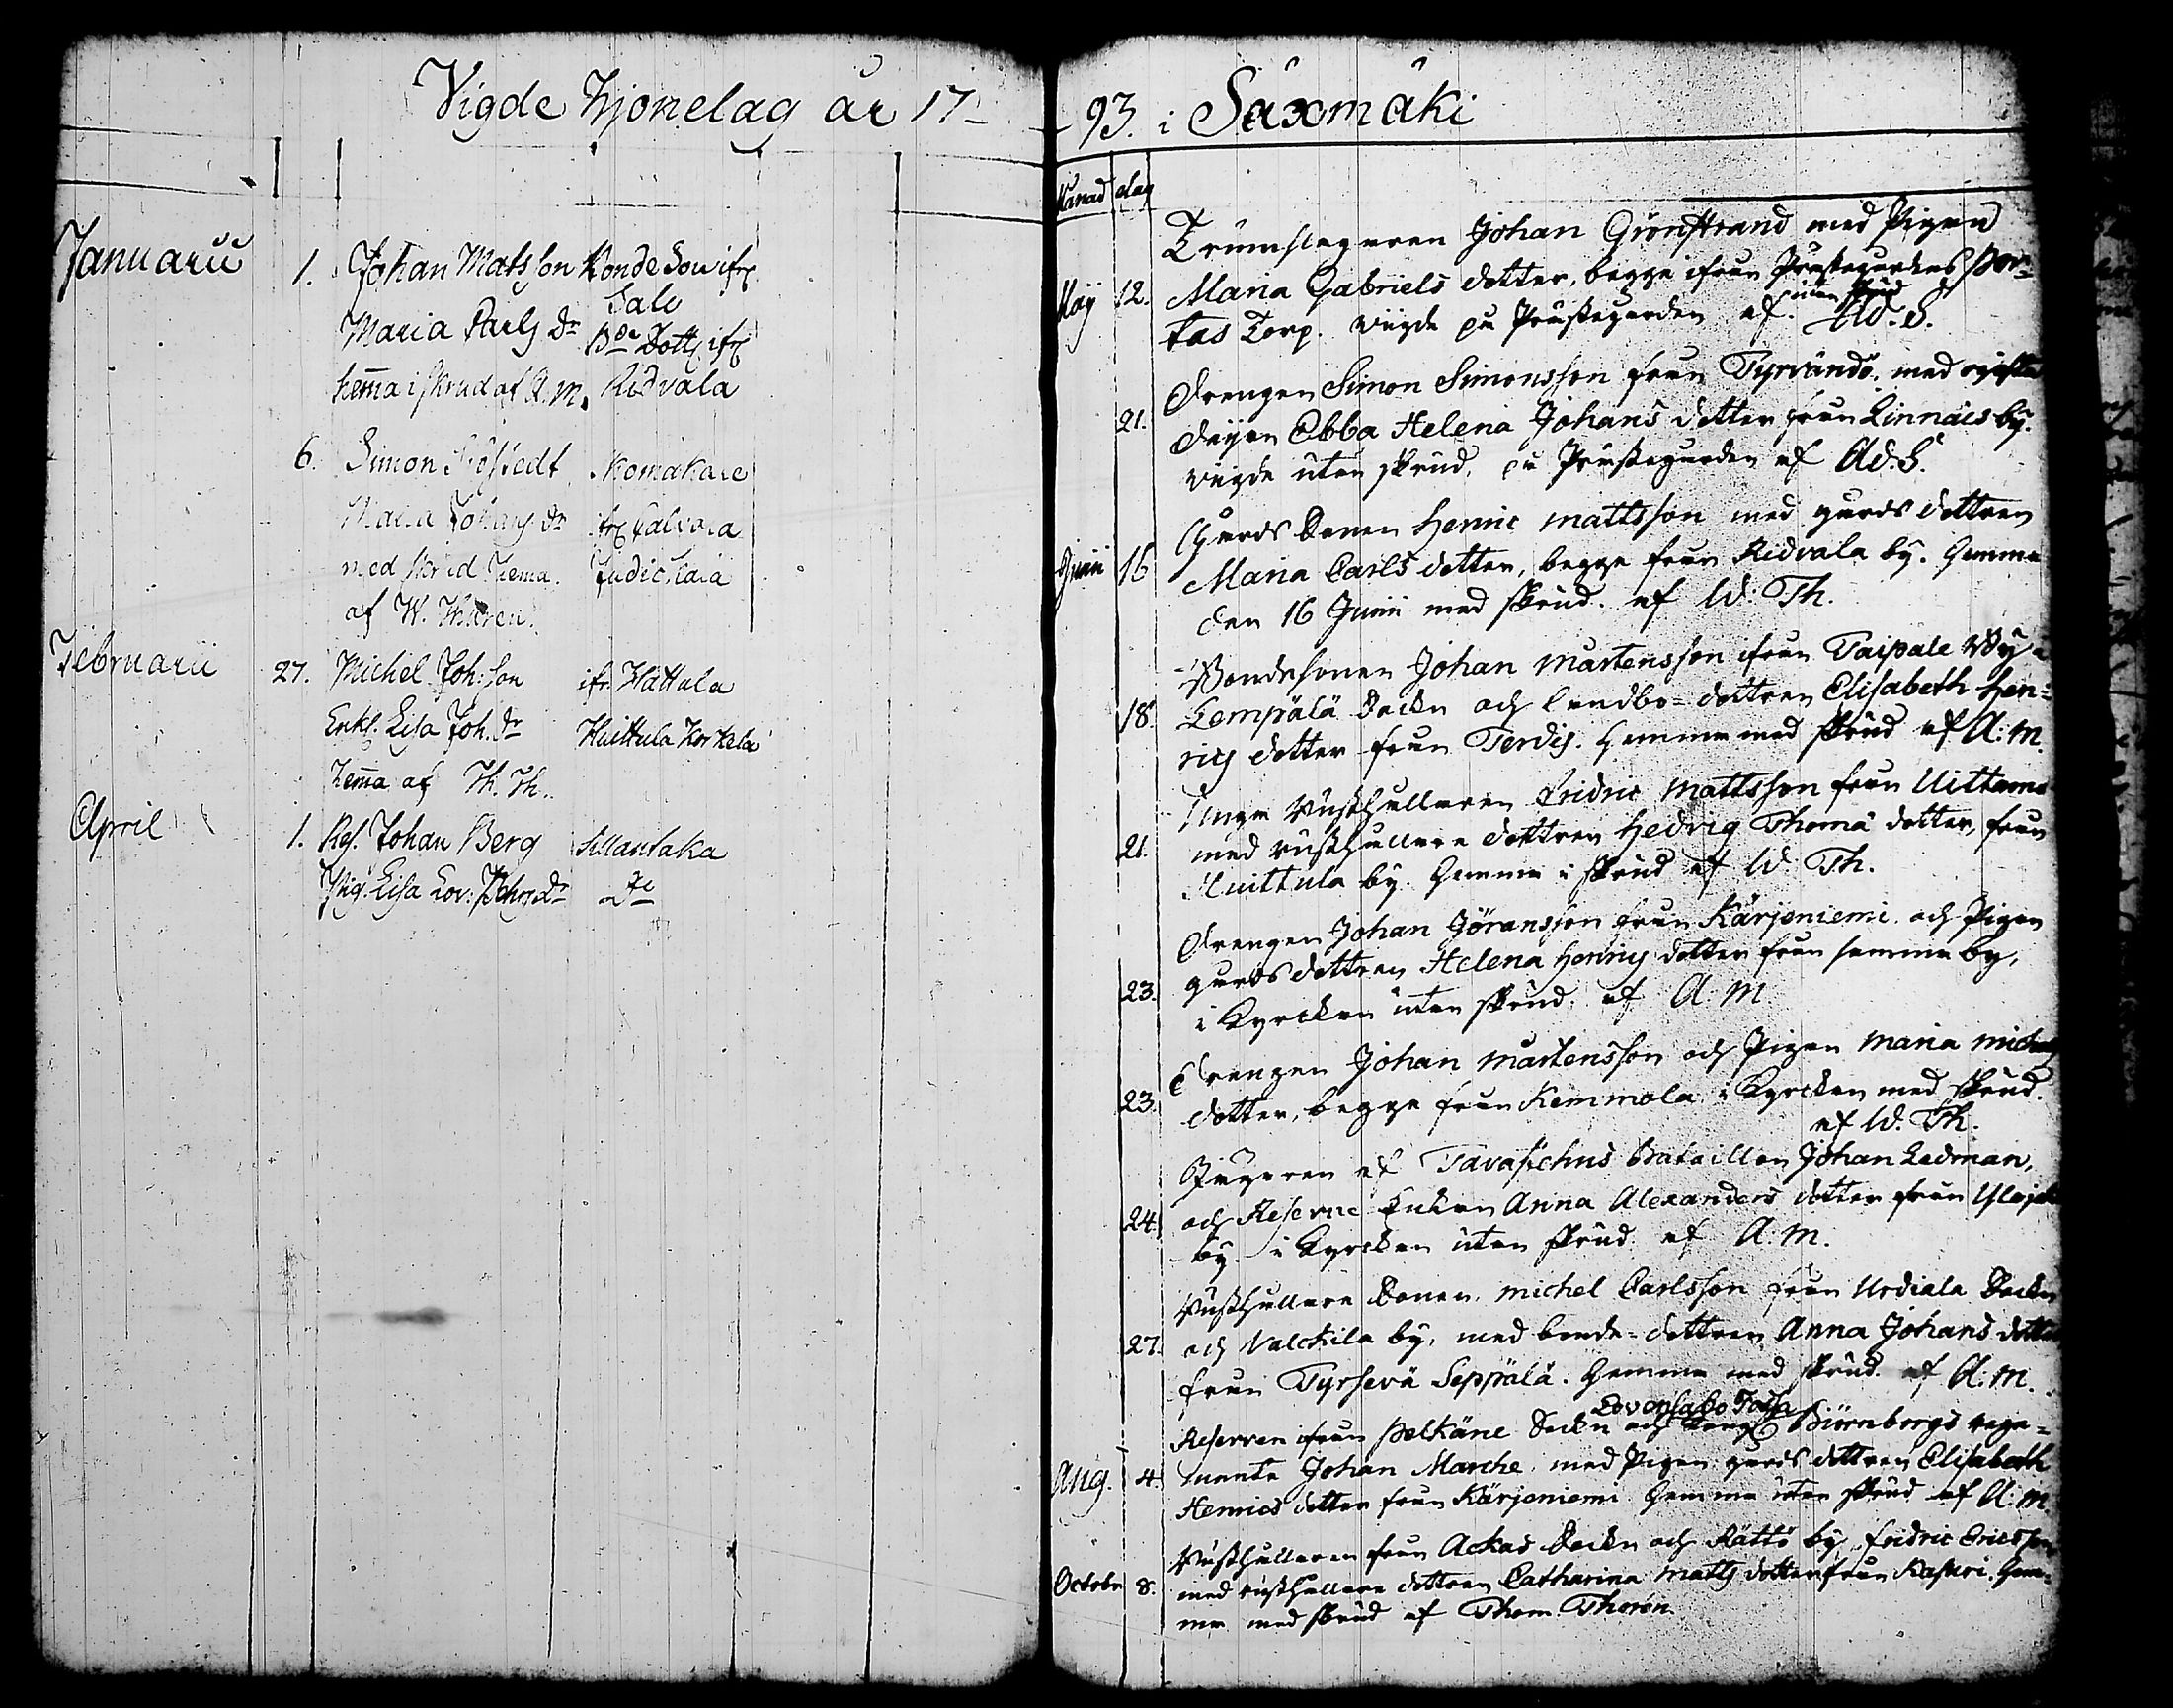 Vigde Hjonelag år 17-
Januarii
1. Johan Matsson Bonde Son ifr.
Salo
Maria Carls dr Bde Dott. ifr
hema i skrud af A. M. Ridvala
6. Simon Skomakare
Maria Johans dr ifr.
med skrud hema.
af W. Thoren.
Februarii 27. Michel Joh: Son ifr. Hattula
Enkf. Lisa Joh. dr Huittula Korkela
hema af Th. Th.
April 1. Ref. Johan Berg
Pig. Lisa Lov: dr do
-93. i Säxmäki
Månad dag
Trumslagaren Johan Grönstrand med Pigan
Maji 12. Maria Gabriels dotter, begge ifrån Prästegårdens Por-
utan skrud
tas Torp. vigde på Prästegården af Ad. S.
Drengen Simon Simonsson från Tyrvändö, med
21. Pigan Ebba Helena Johans dotter från Linnais by.
vigde utan skrud, på Prästegården af Ad. S.
Gårds Sonen Henric Mattsson med gårds dottren
Junii 16 Maria Carls dotter, begge från Ridvala by. Hemma
den 16 Junii med skrud. af W. Th.
Bondesonen Johan Mårtensson ifrån Taipale by i
18. Lempälä Sockn och Landbo-dottren Elisabeth Hen-
rics dotter från Tervis. Hemma med skrud af A: M.
Unga Rusthållaren Fridric Mattsson från Uittamo
21. med rusthållare dottren Hedvig Thomæ dotter, från
Huittula by. Hemma i skrud af W. Th.
Drengen Johan Jöransson från Kärjeniemi och Pigan
23. gårds dottren Helena Henrics dotter från samma by,
i Kyrckan utan skrud. af A. M
Drengen Johan Mårtensson och Pigan Maria Michels
23. dotter, begge från Kemmola i Kyrckan med skrud.
af W. Th.
Jägaren af Tavastehus Bataillon Johan Ledman,
24. och Reserve Enkan Anna Alexanders dotter från
by. i Kyrckan utan skrud af A. M.
Rusthållare Sonen Michel Carlsson från Urdiala Sockn
27. och Valckila by, med bonde-dottren Anna Johans dotter
från Tyrsevä Seppälä. Hemma med skrud. af A: M.
Reserven ifrån Pelkäne Sockn och Björneborgs rege-
Aug. 4. mente Johan Marche, med Pigan gårds dottren Elisabeth
Henrics dotter från Kärjeniemi Hemma utan skrud af A: M.
Rusthållaren från Ackas Sockn och Rättö by Fridric Ericsson
Octobr 8. med rusthållare dottren Catharina Matts dotter från Kaskuri. Hem-
ma med skrud af Thom. Thoren.